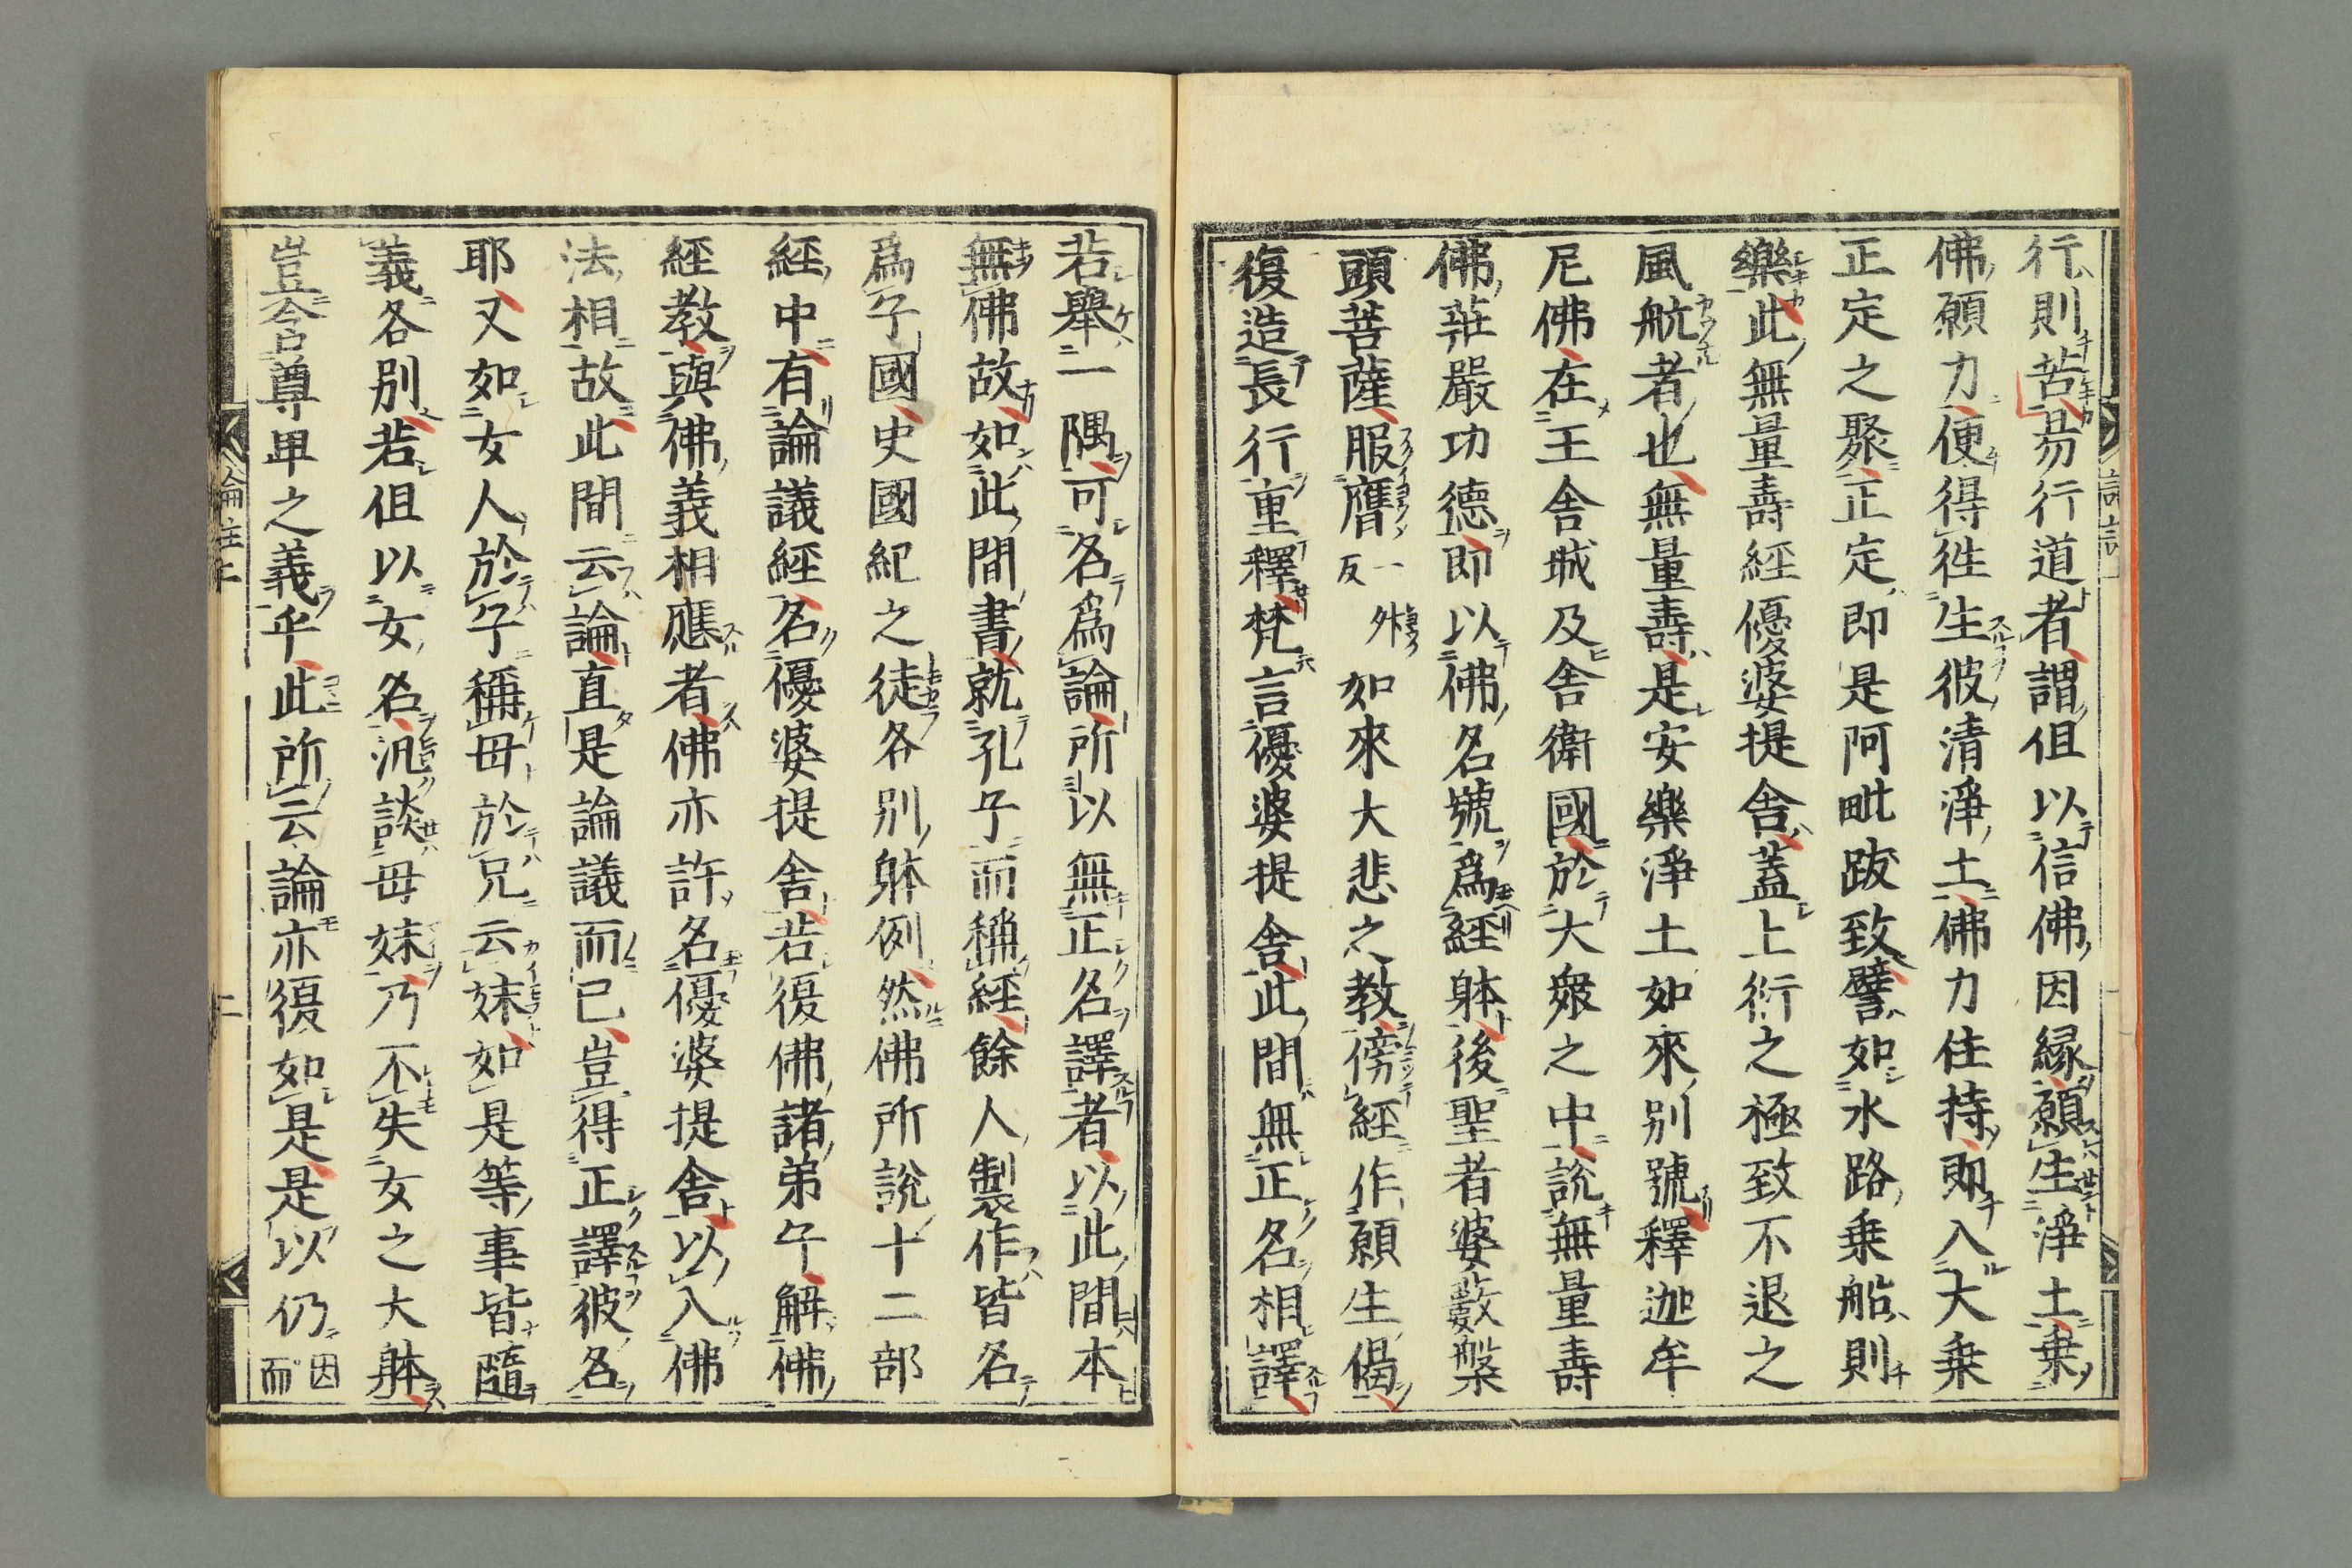 行則苦易行道者謂但以信佛因縁願生淨土乗
佛願力便得徃生彼清淨土佛力住持即入大乗
正定之聚正定即是阿毗跋致譬如水路乗船則
樂此無量壽經優婆提舍蓋上衍之極致不退之
風航者也無量壽是安樂淨土如來別號釋迦牟
尼佛在王舍城及舍衛國於大衆之中説無量壽
佛莊嚴功德即以佛名號爲經躰後聖者婆藪槃
頭菩薩服膺一外反如來大悲之教傍經作願生偈
復造長行重釋梵言優婆提舍此間無正名相譯
若舉一隅可名爲論所以無正名譯者以此間本
無佛故如此間書就孔子而稱經餘人製作皆名
爲子國史國紀之徒各別躰例然佛所説十二部
經中有論議經名優婆提舍若復佛諸弟子解佛
經教與佛義相應者佛亦許名優婆提舍以入佛
法相故此間云論直是論議而已豈得正譯彼名
耶又如女人於子稱母於兄云妹如是等事皆隨
義各別若但以女名汎談母妹乃不失女之大躰
豈含尊卑之義乎此所云論亦復如是是以仍因而
論註上
二